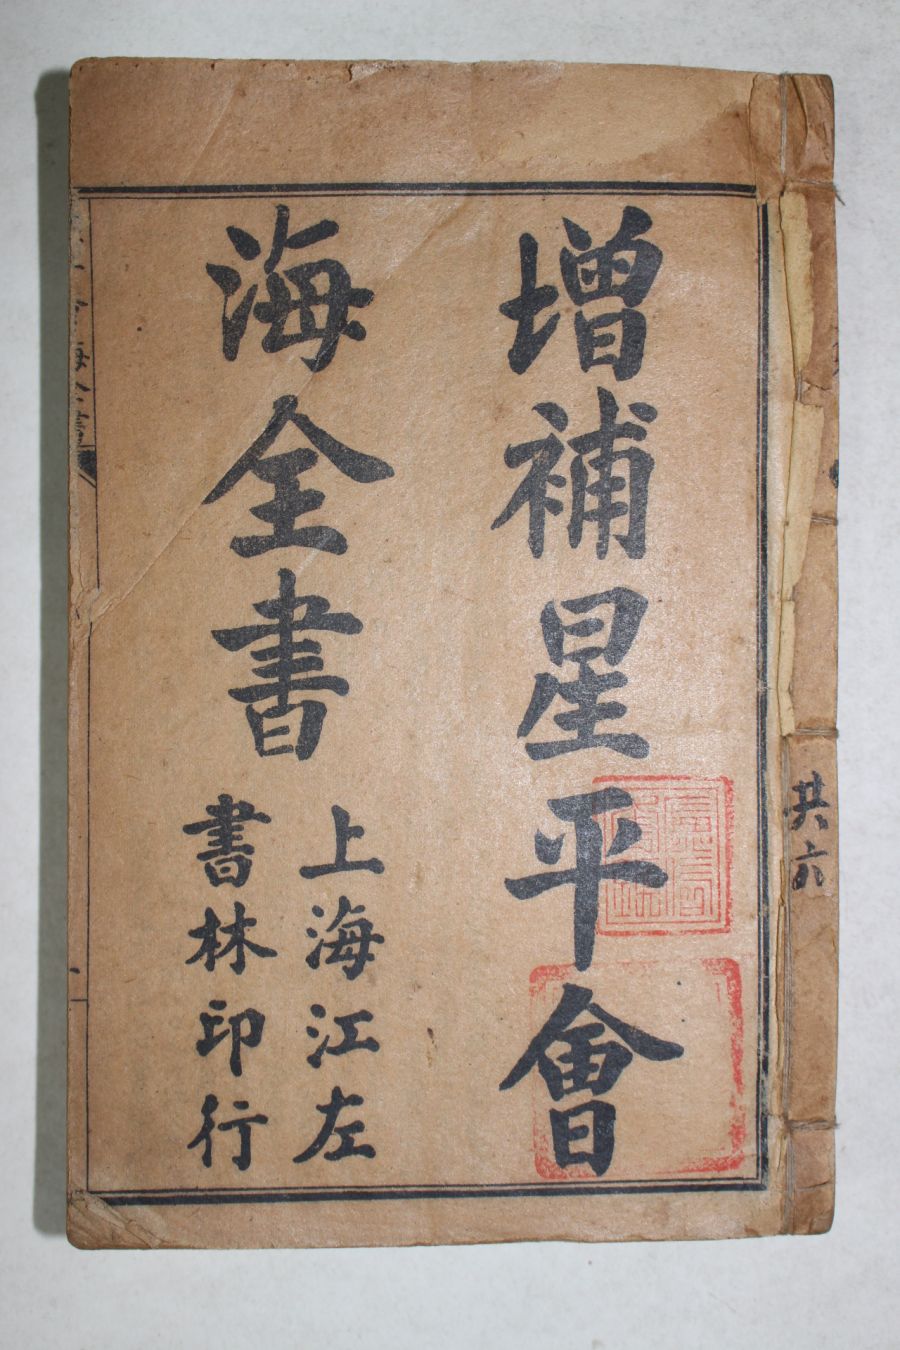 共六
增補星平會
海全書
上海江左
書林印行